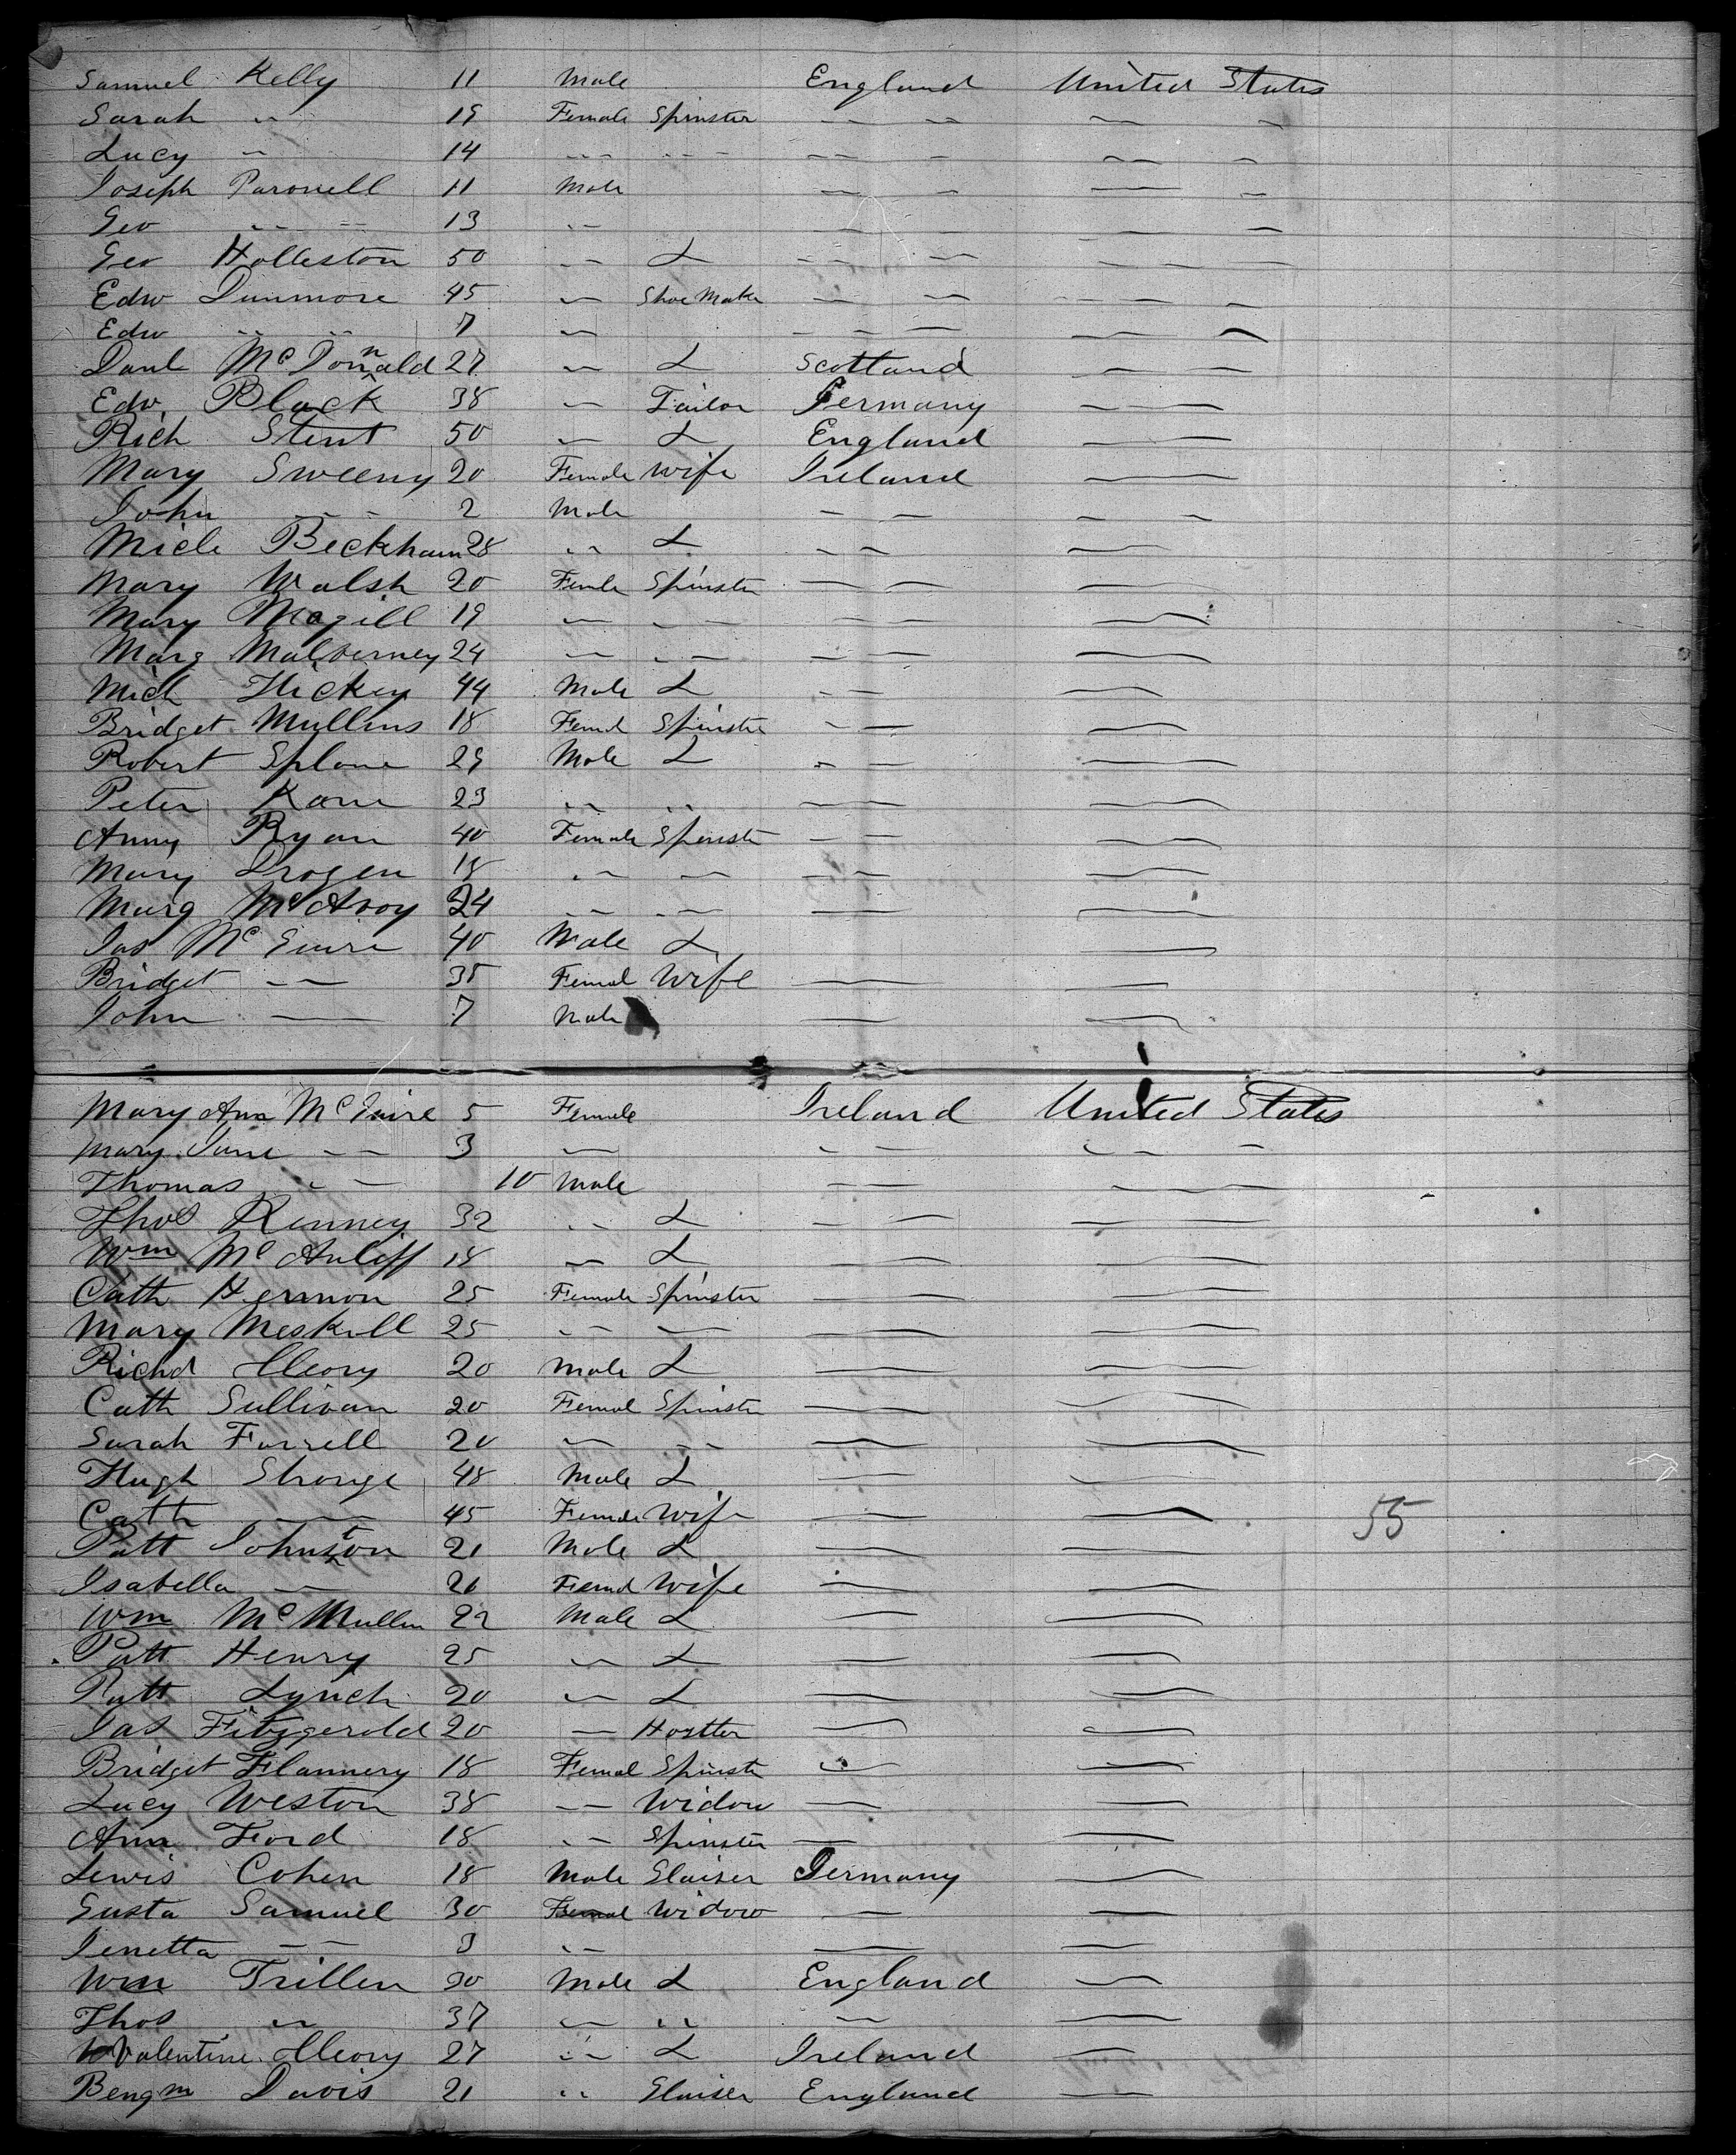 Samuel Kelly 11 Male England United States
Sarah " 19 Female Spinster " " " "
Lucy " 14 " " " " " "
Joseph Paronell 11 Male " " " "
Geo " " 13 " " " " "
Geo Holleston 50 " L " " " "
Edw Dunmore 45 " Shoe Make " " " "
Edw " " 7 " " " " "
Danl McDonnald 27 " L Scotland " "
Edw Black 38 " Tailor Germany " "
Rich Stent 50 " L England " "
Mary Sweeny 20 Female Wife Ireland "
John " " 2 Male " " " "
Micle Beckham 28 " L " " "
Mary Walsh 20 Femle Spinster " " "
Mary Magill 19 " " " " "
Marg Malverney 24 " " " " "
Mich Hickey 44 Male L " " "
Bridget Mullins 18 Femd Spinster " " "
Robert Splane 29 Male L " " "
Peter Kane 23 " " " " "
Anny Ryan 40 Female Spinster " " "
Mary Drogen 18 " " " " "
Marg McAvoy 24 " " " "
Jas McGuire 40 Male L "
Bridget " 35 Femal Wife " "
John " 7 Male " "
Mary Ann McGuire 5 Female Ireland United States
Mary Jane " 3 " " " " "
Thomas " 10 Male " " "
Thos Kenney 32 " L " " "
Wm McAuliff 18 " L " " "
Cath Hermon 25 Female Spinster " " "
Mary Meskill 25 " " " " "
Richd Cleory 20 Male L " "
Cath Sullivan 20 Femal Spinste " "
Sarah Farrell 20 " " " "
Hugh Stronge 48 Male L " "
Cath " 45 Female Wife " " 55
Patt Johnston 21 Male L " "
Isabella " 26 Femd Wife " "
Wm McMullen 22 Male L " "
Patt Henry 25 " L " "
Patt Lynch 20 " L " "
Jas Fitzgerald 20 " Hostler " "
Bridget Flannery 18 Femal Spinste " "
Lucy Weston 38 " Widow " "
Ann Ford 18 " Spinster " "
Lewis Cohen 18 Male Glaiser Germany "
Gusta Samuel 30 Femal Widow " "
Jenetta " 3 " " "
Wm Trillen 30 Male L England "
Thos " 37 " " " "
Valentine Cleory 27 " L Ireland "
Bengm Davis 21 " Glaiser England "